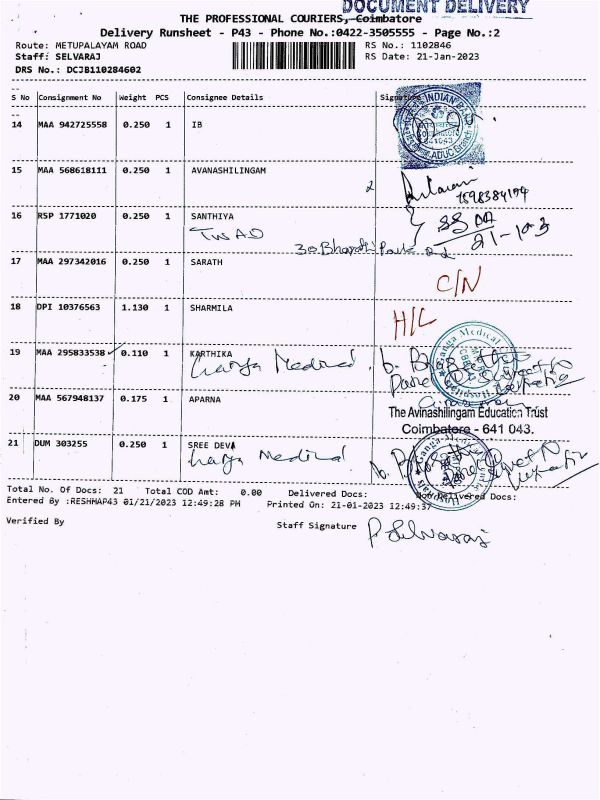 DOCUMENT DELIVERY
THE PROFESSIONAL COURIERS, Coimbatore
Delivery Runsheet - P43 - Phone No.:0422-3505555 - Page No.:2
Route: METUPALAYAM ROAD RS No.: 1102846
Staff: SELVARAJ RS Date: 21-Jan-2023
DRS No.: DCJB110284602
S No Consignment No Weight PCS Consignee Details
14 MAA 942725558 0.250 1 IB
INDIAN
641043
ADUC Branch
15 MAA 568618111 0.250 1 AVANASHILINGAM
2
16 RSP 1771020 0.250 1 SANTHIYA
TWAD
30 Bharathi Park Rd
17 MAA 297342016 0.250 1 SARATH
C/N
18 DPI 10376563 1.130 1 SHARMILA
H/L
19 MAA 295833538 0.110 1 KARTHIKA
Ganga Medical
Medical
20 MAA 567948137 0.175 1 APARNA
The Avinashilingam Education Trust
Coimbatore - 641 043.
21 DUM 303255 0.250 1 SREE DEVA
Medical
Ganga Medical
Total No. Of Docs: 21 Total COD Amt: 0.00 Delivered Docs: Non Delivered Docs:
Entered By :RESHMAP43 01/21/2023 12:49:28 PM Printed On: 21-01-2023 12:49:37
Verified By Staff Signature P. Selvaraj